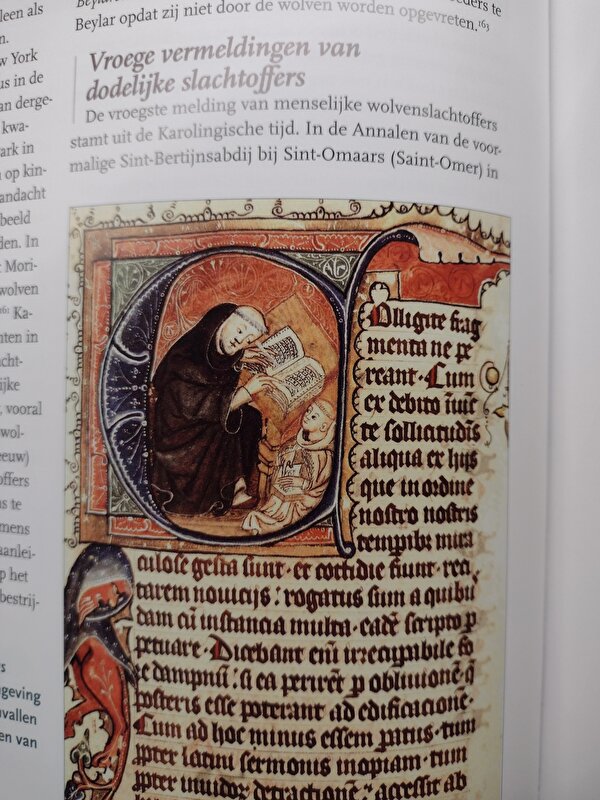 leen als
n.
w York
us in de
an derge-
kwa-
ark in
n op kin-
andacht
beeld
den. In
t Mori-
wolven
¹⁶¹ Ka-
nten in
acht-
lijke
, vooral
wol-
eeuw)
offers
s te
mens
aanlei-
p het
bestrij-
s
ngeving
vallen
en van
Beylar opdat zij niet door de wolven worden opgevreten.¹⁶³
Vroege vermeldingen van
dodelijke slachtoffers
De vroegste melding van menselijke wolvenslachtoffers
stamt uit de Karolingische tijd. In de Annalen van de voor-
malige Sint-Bertijnsabdij bij Sint-Omaars (Saint-Omer) in
Colligite frag
menta ne pe
reant. Cum
ex debito
te sollicitudīs
aliqua ex hijs
que in ordine
nostro nostris
temporibꝫ mira
culose gesta sunt et cottidie fiunt reci
tarem novicijs: rogatus sum a quibꝰ
dam cū instancia multa eadē scripto p
petuare. Dicebant enī irrecupabile fo
re dampnū si ea perirēt p oblivionē q̄
posteris esse poterant ad edificationē.
Cum ad hoc minus essem patus tum
ppter latini sermonis inopiam tum
ppter invidor detractionē: accessit ab